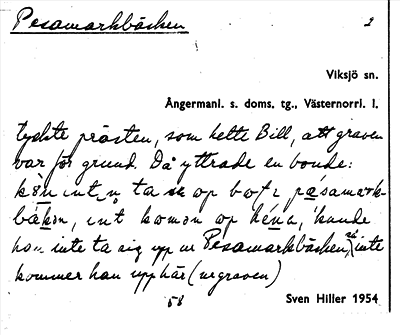 Pesamarkbäcken 2
Viksjö sn.
Ångermanl. s. doms. tg., Västernorrl. l.
tyckte prästen, som hette Bill, att graven
var för grund. Då yttrade en bonde:
int ta se op pæsamark-
int komən op "kunde
han inte ta sig upp ur Pesamarkbäcken, inte
kommer han upp här (ur graven)
58
Sven Hiller 1954